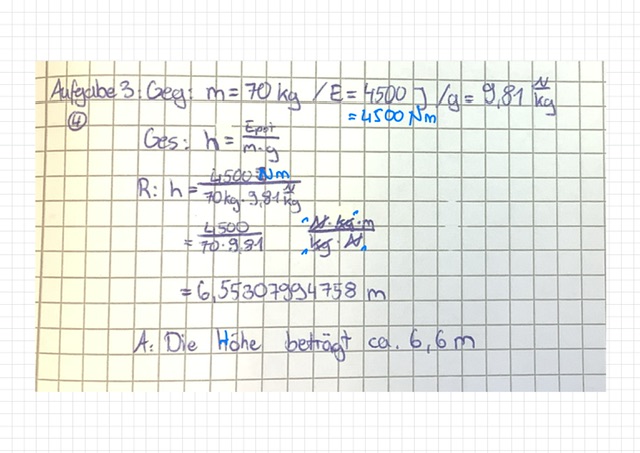 Aufgabe 3: Geg: m = 70 kg / E = 4500 J / g = 9,81 N/kg
④ = 4500 Nm
Ges: h = Epot / m·g
R: h = 4500 Nm / 70kg · 9,81 N/kg
= 4500 / 70·9,81 N·kg·m / kg·N
= 6,55307994758 m
A: Die Höhe beträgt ca. 6,6 m